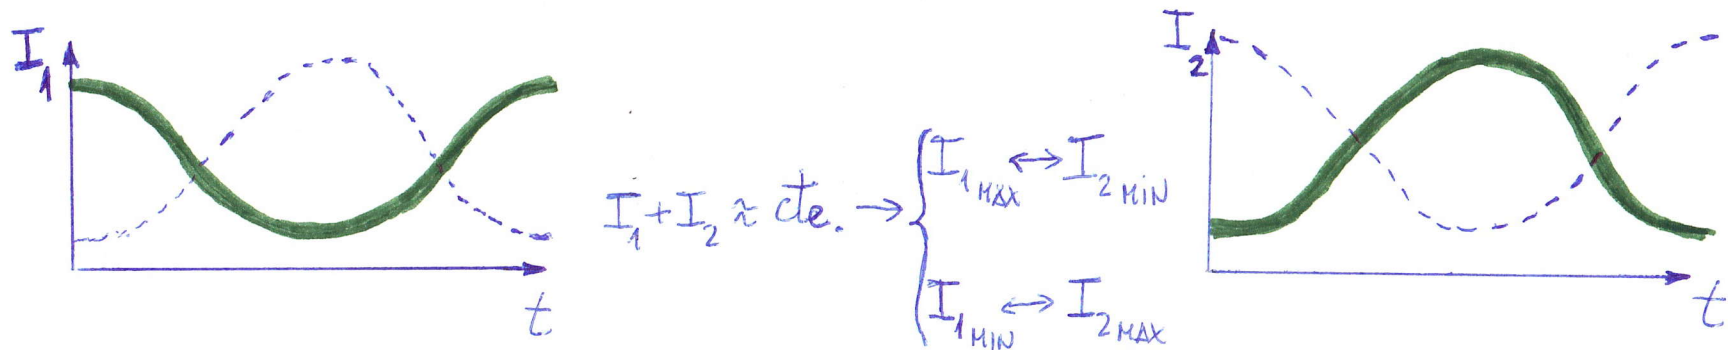 I₁
t
I₁ + I₂ ≈ cte. → {
I₁ MAX ↔ I₂ MIN
I₁ MIN ↔ I₂ MAX
I₂
t